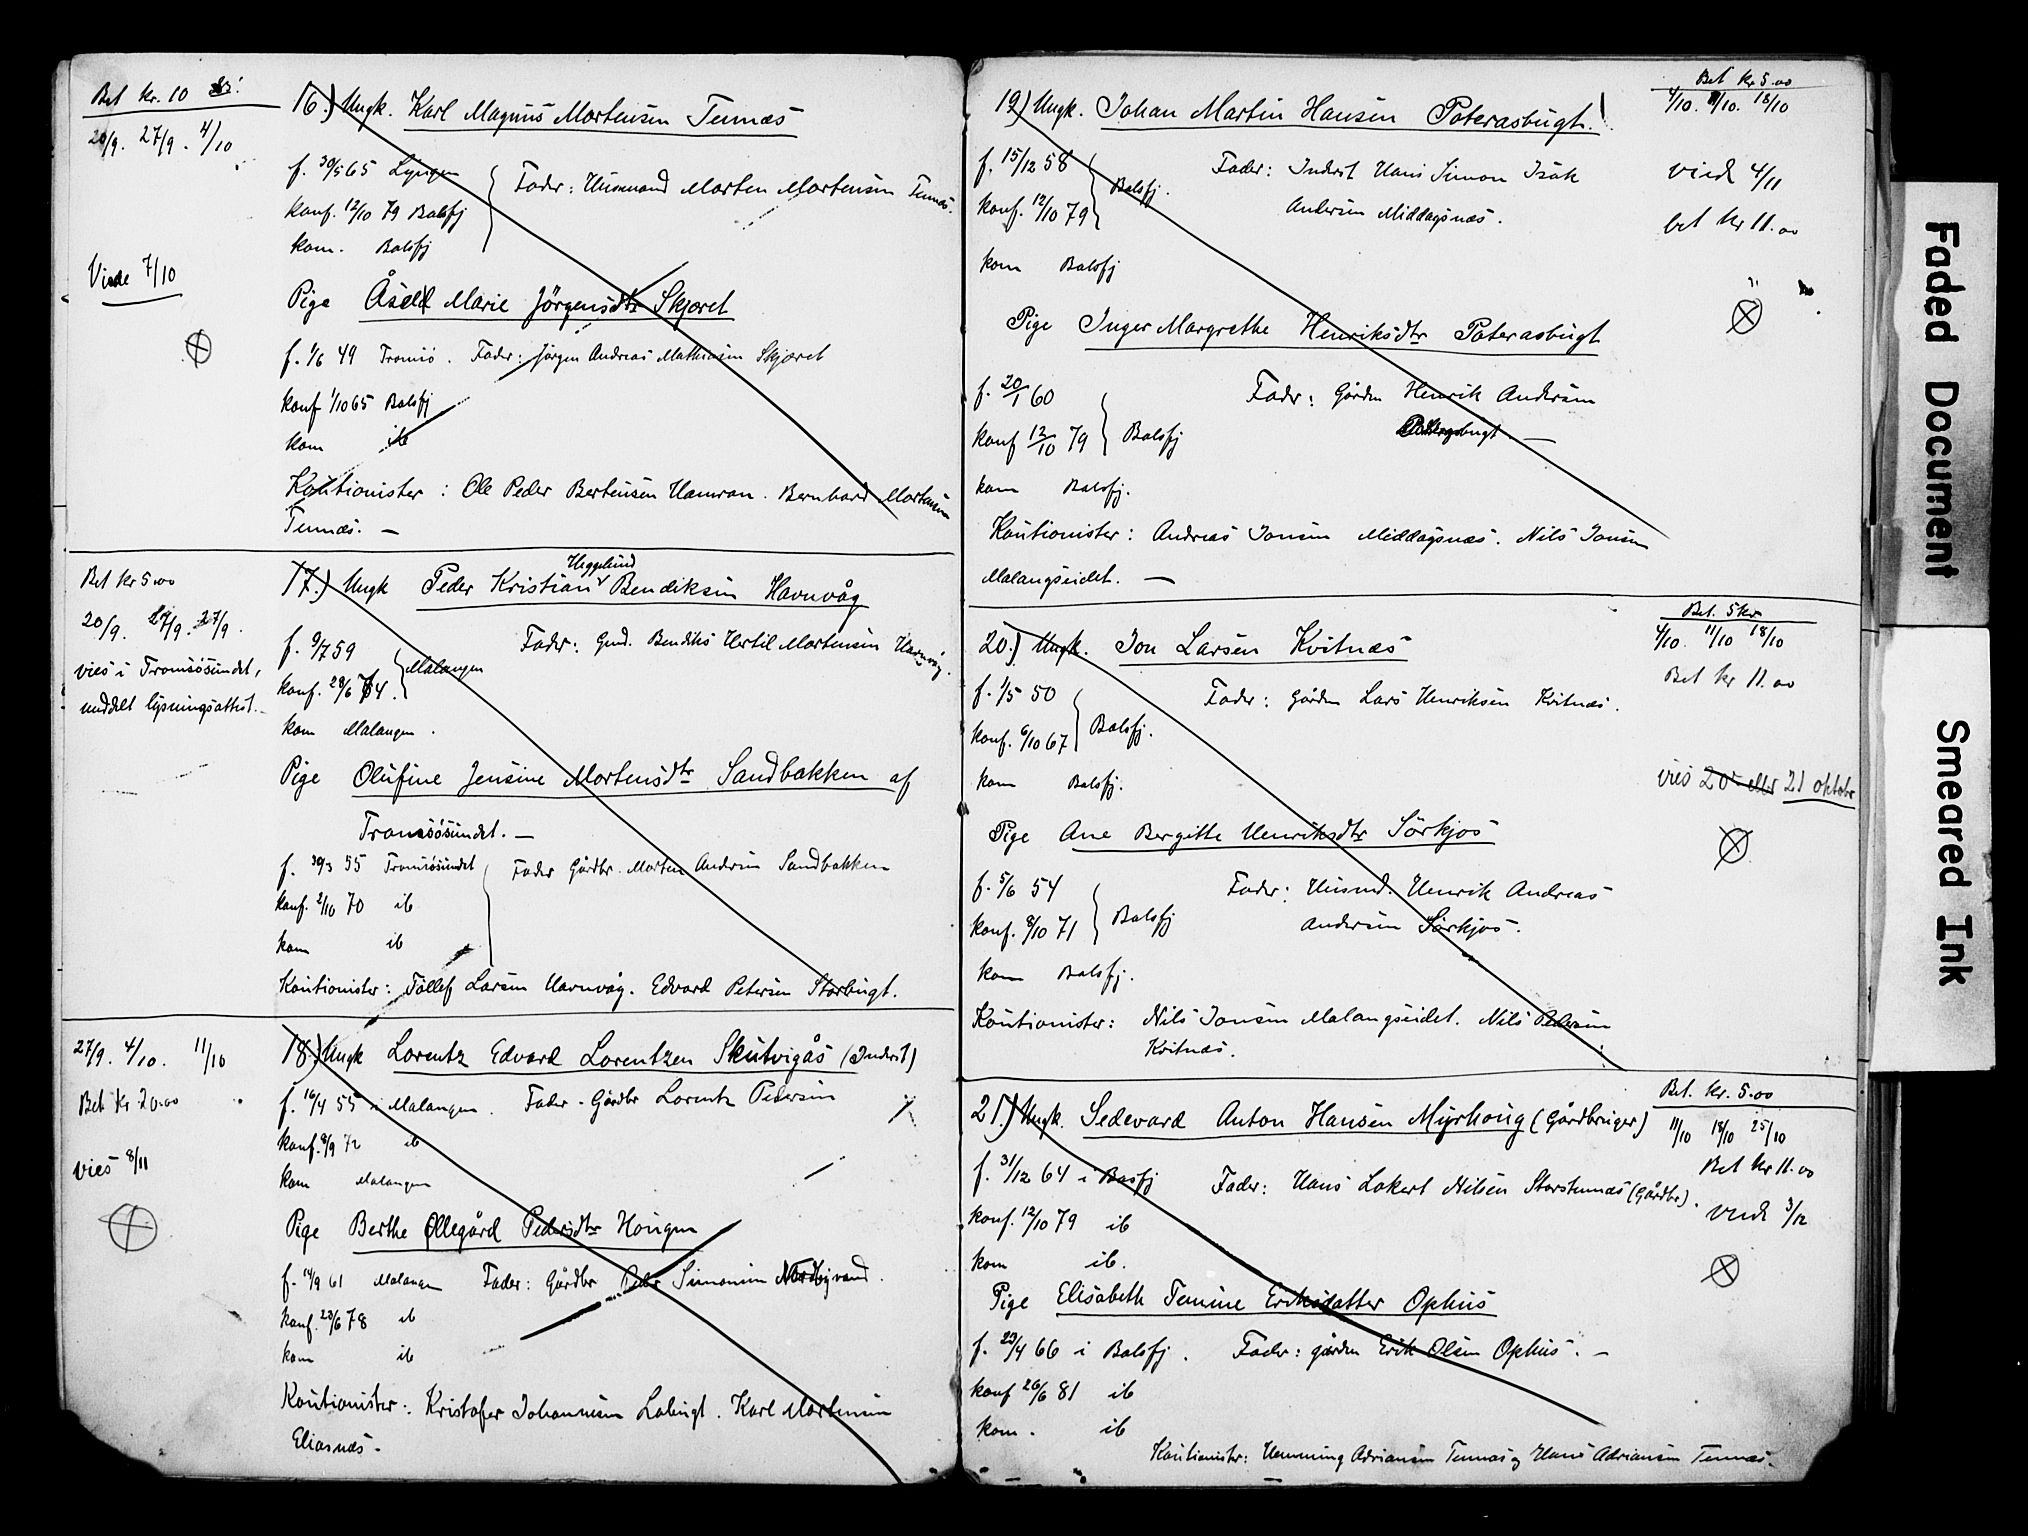 Bet kr. 10
20/9. 27/9. 4/10
Viede 7/10
16.) Ungk. Karl Magnus Mortensen Tennæs
f. 30/5 65 Lyngen
Fader: Husmand Morten Mortensen Tennæs.
konf. 12/10 79 Balsfj
kom. Balsfj
Pige Åseld Marie Jörgensdtr Skjæret
f. 1/6 49 Tromsö. Fader: Jörgen Andreas Mathiesen Skjæret
konf 1/10 65 Balsfj
kom ib
Kautionister: Ole Peder Bertensen Hamran. Bernhard Mortensen
Tennæs. —
Bet kr 5.00
20/9. 27/9. 27/9.
vies i Tromsösundet,
meddelt lysningsattest.
Heggelund
17.) Ungk Peder Kristian v Bendiksen Havnvåg
f. 9/7 59
Fader: Gmd. Bendiks Hertil Mortensen Havnvåg.
Malangen
konf. 28/6 74.
kom Malangen.
Pige Olufine Jensine Mortensdtr Sandbakken af
Tromsösundet. —
f. 30/3 55 Tromsösundet
Fader Gårdbr. Morten Andersen Sandbakken
konf. 2/10 70 ib
kom ib
Kautionister: Tollef Larsen Havnvåg. Edvard Petersen Storbugt.
27/9. 4/10. 11/10
Bet Kr 20.00
vies 8/11
18.) Ungk Lorentz Edvard Lorentzen Skutvigås (Inderst)
f. 16/4 55 i Malangen. Fader - Gårdbr Lorentz Pedersen
konf. 8/9 72 ib
kom Malangen
Pige Berthe Ollegård Pedersdtr Hougen
f. 14/9 61 Malangen Fader: Gårdbr Peder Simonsen Nordbyvand.
konf. 23/6 78 ib
kom ib
Kautionister: Kristofer Johannesen Labugt. Karl Mortensen
Eliasnæs.
Bet Kr 5.00
4/10. 11/10. 18/10
viede 4/11
bet kr 11.00
19) Ungk. Johan Martin Hansen Paterasbugt.
f. 15/12 58
Balsfj.
Fader: Inderst Hans Simon Isak
konf. 12/10 79
Andersen Middagsnæs.
kom Balsfj
Pige Inger Margrethe Henriksdtr Paterasbugt
f. 20/1 60
Fader: Gårdm Henrik Andersen
konf 12/10 79
Balsfj
kom Balsfj.
Kautionister: Andreas Jonsen Middagsnæs. Nils Jonsen
Malangseidet. —
Bet. 5 kr
4/10. 11/10 18/10
Bet kr 11.00
vies 20de eller 21 oktober
20.) Ungk. Jon Larsen Kvitnæs
f. 1/5 50
Balsfj.
Fader: Gårdm Lars Henriksen Kvitnæs.
konf. 6/10 67
kom Balsfj.
Pige Ane Bergitte Henriksdtr Sörkjos
f. 5/6 54
Balsfj
Fader: Husmd. Henrik Andreas
konf. 8/10 71
Andersen Sörkjos.
kom Balsfj.
Kautionister: Nils Jonsen Malangseidet. Nils Pedersen
Kvitnæs.
Bet. kr. 5.00
11/10 18/10 25/10
Bet kr 11.00
viede 3/12
21.) Ungk. Sedevard Anton Hansen Myrhoug (Gårdbruger)
f. 31/12 64 i Balsfj Fader: Hans Lakert Nilsen Storstennæs (Gårdbr).
konf. 12/10 79 ib
kom ib.
Pige Elisabeth Temine Eriksdatter Ophus
f. 29/4 66 i Balsfj. Fader: gårdm Erik Olsen Ophus. —
konf 26/6 81 ib
kom. ib
Kautionister: Hemming Adriansen Tennæs og Hans Adriansen Tennæs.
Faded Document
Smeared Ink